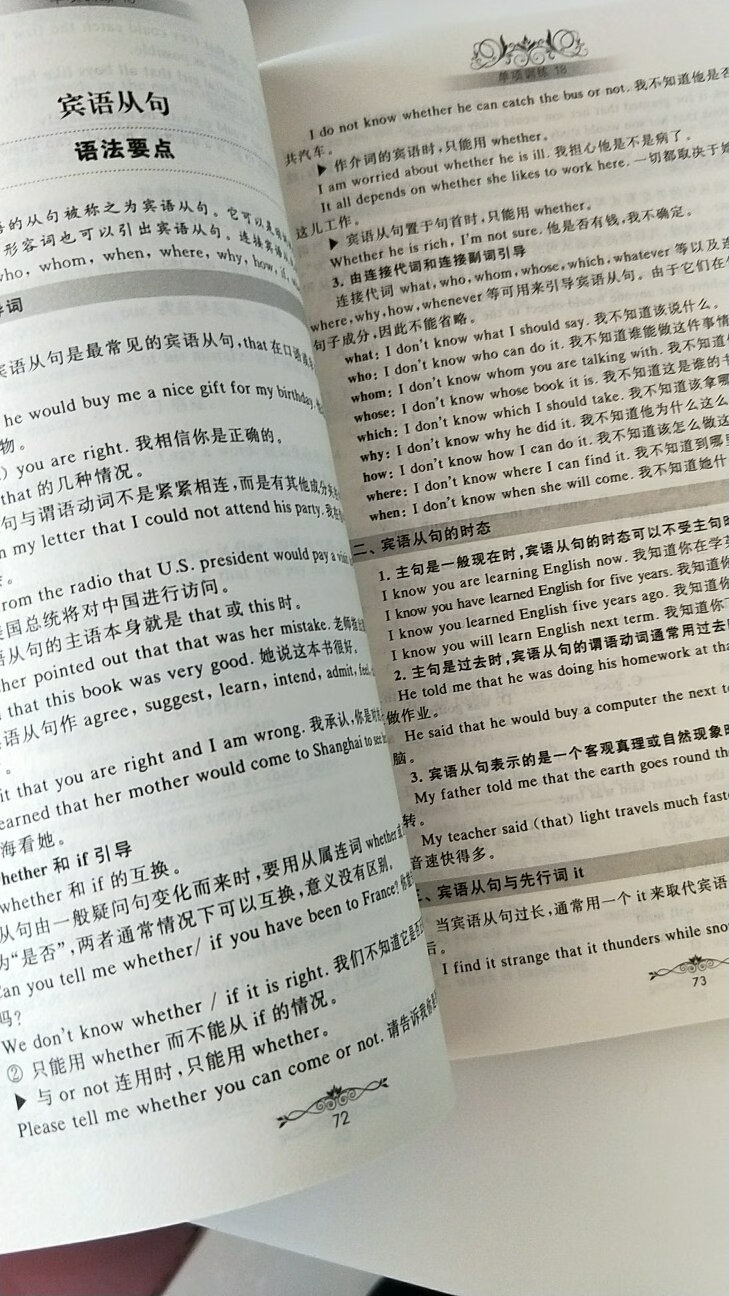 宾语从句
语法要点
的从句被称之为宾语从句。它可以是
形容词也可以引出宾语从句。连接宾语从
who, whom, when, where, why, how, if,
词
宾语从句是最常见的宾语从句,that在口语或
he would buy me a nice gift for my birthday.
物。
) you are right. 我相信你是正确的。
that 的几种情况。
句与谓语动词不是紧紧相连,而是有其他成分
n my letter that I could not attend his party.
from the radio that U.S. president would pay a visit
美国总统将对中国进行访问。
语从句的主语本身就是 that 或 this 时。
her pointed out that that was her mistake. 老师指出
that this book was very good. 她说这本书很好。
语从句作 agree, suggest, learn, intend, admit, feel,
。
it that you are right and I am wrong. 我承认,你是对
earned that her mother would come to Shanghai to see
海看她。
hether 和 if 引导
whether 和 if 的互换。
从句由一般疑问句变化而来时,要用从属连词 whether 或
为“是否”,两者通常情况下可以互换,意义没有区别。
Can you tell me whether/ if you have been to France?
吗?
We don't know whether / if it is right. 我们不知道它是否
② 只能用 whether 而不能从 if 的情况。
▶ 与 or not 连用时,只能用 whether。
Please tell me whether you can come or not. 请告诉我你
72
单项训练 18
I do not know whether he can catch the bus or not. 我不知道他是否
共汽车。
▶ 作介词的宾语时,只能用 whether。
I am worried about whether he is ill. 我担心他是不是病了。
It all depends on whether she likes to work here. 一切都取决于她
这儿工作。
▶ 宾语从句置于句首时,只能用 whether。
Whether he is rich, I'm not sure. 他是否有钱,我不确定。
3. 由连接代词和连接副词引导
连接代词 what, who, whom, whose, which, whatever 等以及连
where, why, how, whenever 等可用来引导宾语从句。由于它们在
句子成分,因此不能省略。
what: I don't know what I should say. 我不知道该说什么。
who: I don't know who can do it. 我不知道谁能做这件事情
whom: I don't know whom you are talking with. 我不知道
whose: I don't know whose book it is. 我不知道这是谁的书
which: I don't know which I should take. 我不知道该拿哪
why: I don't know why he did it. 我不知道他为什么这么
how: I don't know how I can do it. 我不知道该怎么做这
where: I don't know where I can find it. 我不知道到哪里
when: I don't know when she will come. 我不知道她什
二、宾语从句的时态
1. 主句是一般现在时,宾语从句的时态可以不受主句时
I know you are learning English now. 我知道你在学英
I know you have learned English for five years. 我知道你
I know you learned English five years ago. 我知道你
I know you will learn English next term. 我知道你
2. 主句是过去时,宾语从句的谓语动词通常用过去
He told me that he was doing his homework at tha
做作业。
He said that he would buy a computer the next t
脑。
3. 宾语从句表示的是一个客观真理或自然现象时
My father told me that the earth goes round th
转。
My teacher said (that) light travels much fast
音速快得多。
、宾语从句与先行词 it
当宾语从句过长,通常用一个 it 来取代宾语
后。
I find it strange that it thunders while sno
73